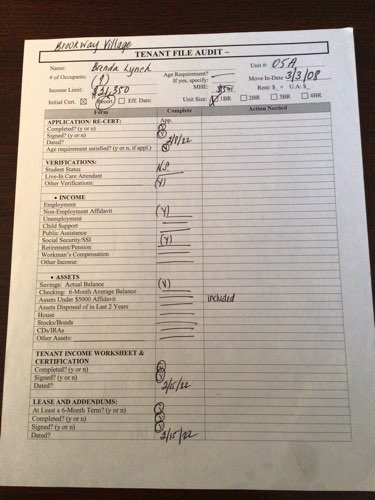 Brookway Village
TENANT FILE AUDIT –
Name: Banda Lynch Unit #: 05A
# of Occupants: (1) Age Requirement? Move In-Date 3/3/08
If yes, specify:
Income Limit: $26,350 MBE: Rent: $ + U.A. $
Initial Cert. ☒ Recert. ☐ Eff. Date: Unit Size: 1BR ☐ 2BR ☐ 3BR ☐ 4BR
Form Complete Action Needed
APPLICATION/ RE-CERT: App.
Completed? (y or n) (Y)
Signed? (y or n) (Y)
Dated? 2/8/22
Age requirement satisfied? (y or n, if appl.)
VERIFICATIONS:
Student Status N.S.
Live-In Care Attendant
Other Verifications: (Y)
• INCOME
Employment
Non-Employment Affidavit (Y)
Unemployment
Child Support
Public Assistance
Social Security/SSI (Y)
Retirement/Pension
Workman's Compensation
Other Income:
• ASSETS
Savings: Actual Balance (Y)
Checking: 6-Month Average Balance
Assets Under $5000 Affidavit included
Assets Disposed of in Last 2 Years
House
Stocks/Bonds
CDs/IRAs
Other Assets:
TENANT INCOME WORKSHEET &
CERTIFICATION
Completed? (y or n) (Y)
Signed? (y or n) (Y)
Dated? 2/15/22
LEASE AND ADDENDUMS:
At Least a 6-Month Term? (y or n) (Y)
Completed? (y or n) (Y)
Signed? (y or n) (Y)
Dated? 2/15/22